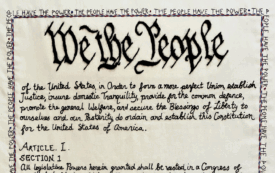 LE HAVE THE POWER • THE PEOPLE HAVE THE POWER • THE PEOPLE HAVE THE POWER • THE P
We the People
of the United States, in Order to form a more perfect Union, establish
Justice, insure domestic Tranquility, provide for the common defence,
promote the general Welfare, and secure the Blessings of Liberty to
ourselves and our Posterity do ordain and establish this Constitution
for the United States of America.
ARTICLE. I.
SECTION 1
All legislative Powers herein granted shall be vested in a Congress of